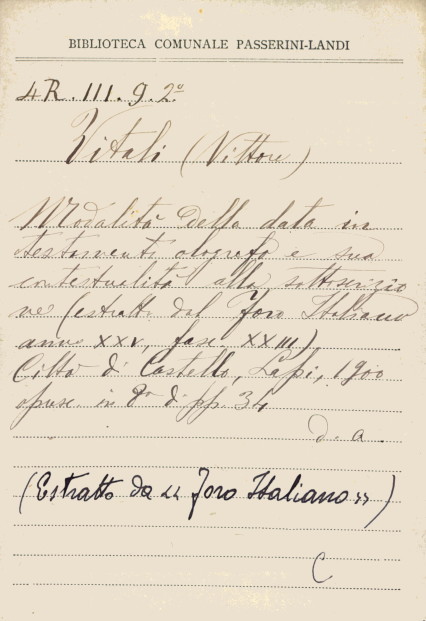 BIBLIOTECA COMUNALE PASSERINI-LANDI
4R. III. 9. 2º
Vitali (Vittore)
Modalità della data in
testamento olografo e sua
contestualità alla sottoscrizio
ne (estratto dal Foro Italiano
anno XXV, fasc. XXIII)
Città di Castello, Lapi, 1900
opusc. in 8º di pp. 34
d. a.
(Estratto da « Foro Italiano »)
C